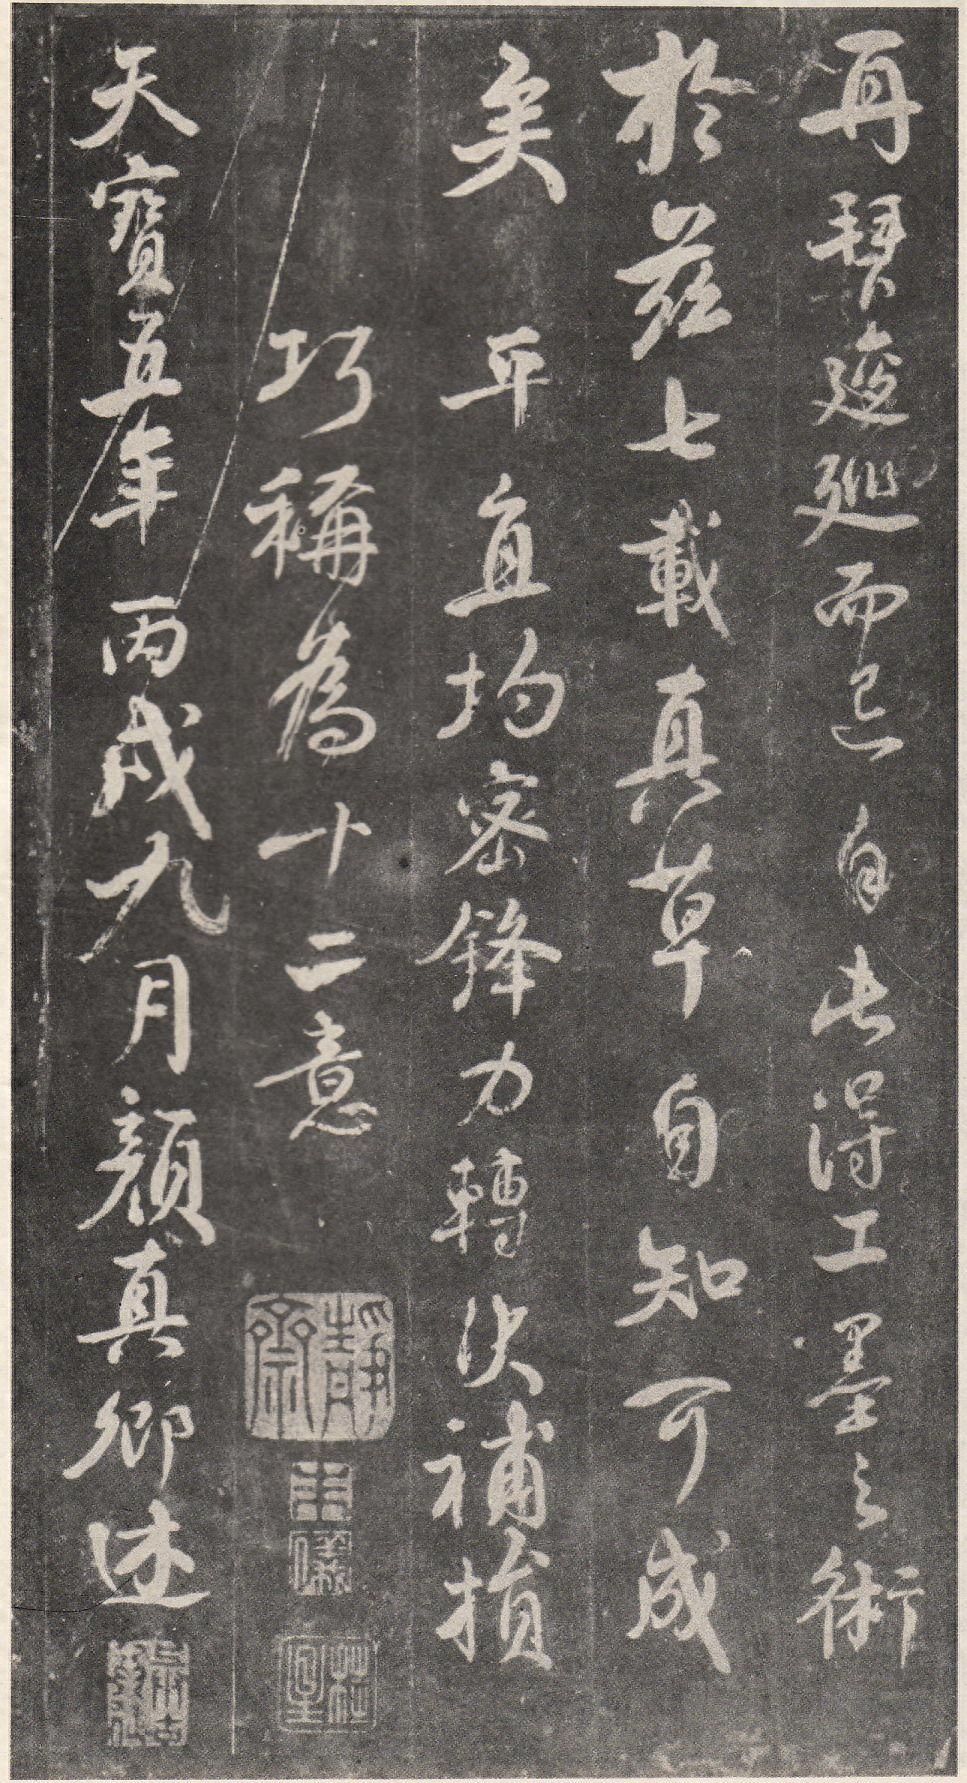 再拜逡巡而已自此得工墨之術
於茲七載真草自知可成
矣 平直均密鋒力轉決補損
巧稱為十二意
天寶五年丙戌九月顏真卿述
靜齋